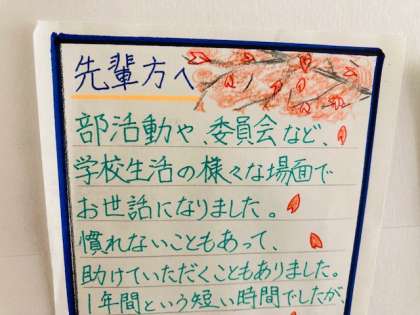 先輩方へ
部活動や、委員会など、
学校生活の様々な場面で
お世話になりました。
慣れないこともあって、
助けていただくこともありました。
1年間という短い時間でしたが、